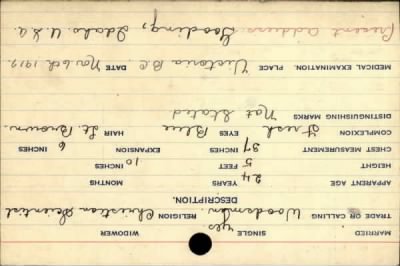 MARRIED SINGLE yes. WIDOWER
TRADE OR CALLING Woodsman. RELIGION Christian Scientist
DESCRIPTION.
APPARENT AGE 24 YEARS MONTHS
HEIGHT 5 FEET 10 INCHES
CHEST MEASUREMENT 37 INCHES EXPANSION 6 INCHES
COMPLEXION Fresh EYES Blue HAIR Lt. Brown.
DISTINGUISHING MARKS Not Stated
MEDICAL EXAMINATION. PLACE Victoria B.C. DATE Nov 6th 1917.
Present address: Gooding, Idaho. U.S.A.